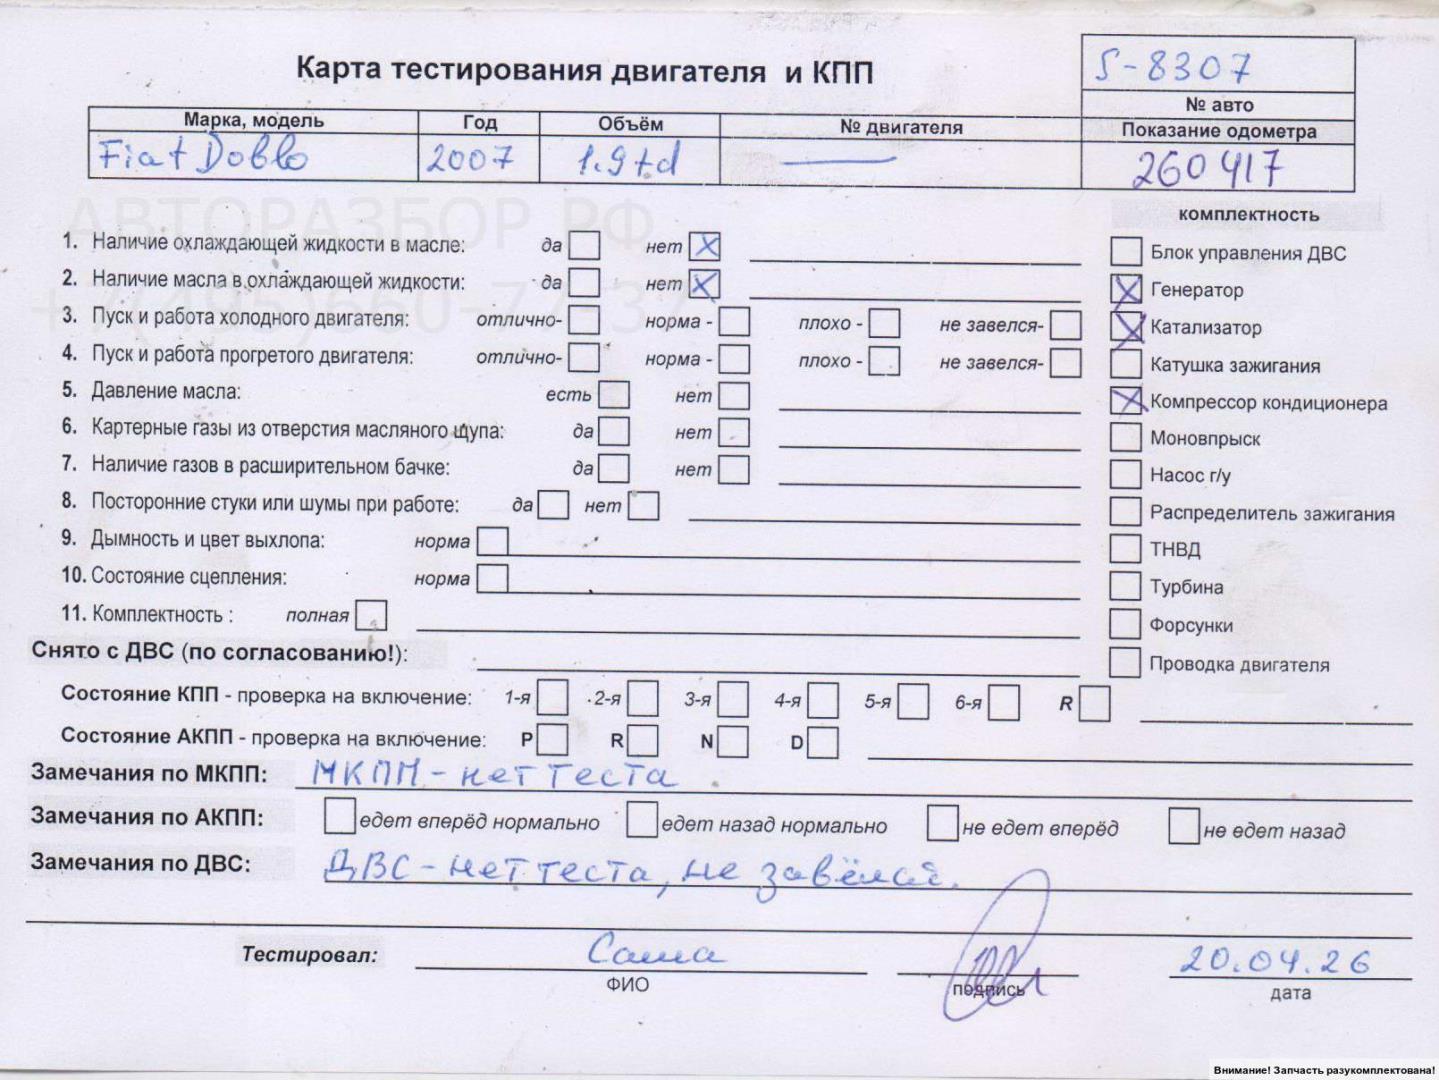 Карта тестирования двигателя и КПП
S-8307
№ авто
Марка, модель Год Объём № двигателя Показание одометра
Fiat Doblo 2007 1.9td — 260417
АВТОРАЗБОР РФ
+7(495)660-77-37
комплектность
1. Наличие охлаждающей жидкости в масле: да нет X
Блок управления ДВС
2. Наличие масла в охлаждающей жидкости: да нет X
X Генератор
3. Пуск и работа холодного двигателя: отлично- норма - плохо - не завелся-
X Катализатор
4. Пуск и работа прогретого двигателя: отлично- норма - плохо - не завелся-
Катушка зажигания
5. Давление масла: есть нет
X Компрессор кондиционера
6. Картерные газы из отверстия масляного щупа: да нет
Моновпрыск
7. Наличие газов в расширительном бачке: да нет
Насос г/у
8. Посторонние стуки или шумы при работе: да нет
Распределитель зажигания
9. Дымность и цвет выхлопа: норма
ТНВД
10. Состояние сцепления: норма
Турбина
11. Комплектность : полная
Форсунки
Снято с ДВС (по согласованию!):
Проводка двигателя
Состояние КПП - проверка на включение: 1-я 2-я 3-я 4-я 5-я 6-я R
Состояние АКПП - проверка на включение: P R N D
Замечания по МКПП: МКПП - нет теста
Замечания по АКПП: едет вперёд нормально едет назад нормально не едет вперёд не едет назад
Замечания по ДВС: ДВС - нет теста, не завёлся.
Тестировал: Саша 20.04.26
ФИО подпись дата
Внимание! Запчасть разукомплектована!